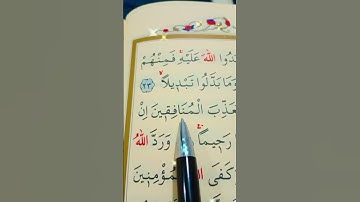 دُوا اللّٰهَ عَلَيْهِ فَمِنْهُمْ
وَمَا بَدَّلُوا تَبْدِيلًا ﴿٢٣﴾
عَذِّبَ الْمُنَافِقِينَ اِنْ
رَحِيمًا وَرَدَّ اللّٰهُ
كَفَى الْمُؤْمِنِينَ